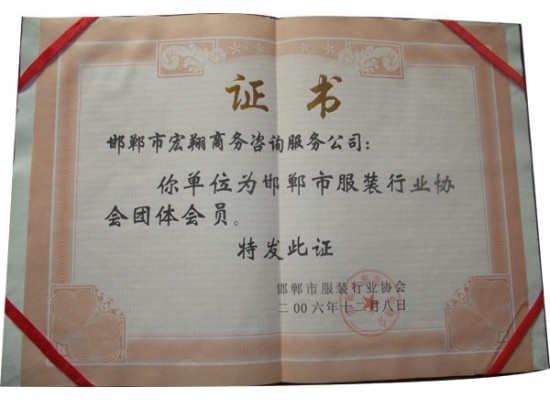 证书
邯郸市宏翔商务咨询服务公司：
你单位为邯郸市服装行业协
会团体会员。
特发此证
邯郸市服装行业协会
二00六年十二月八日